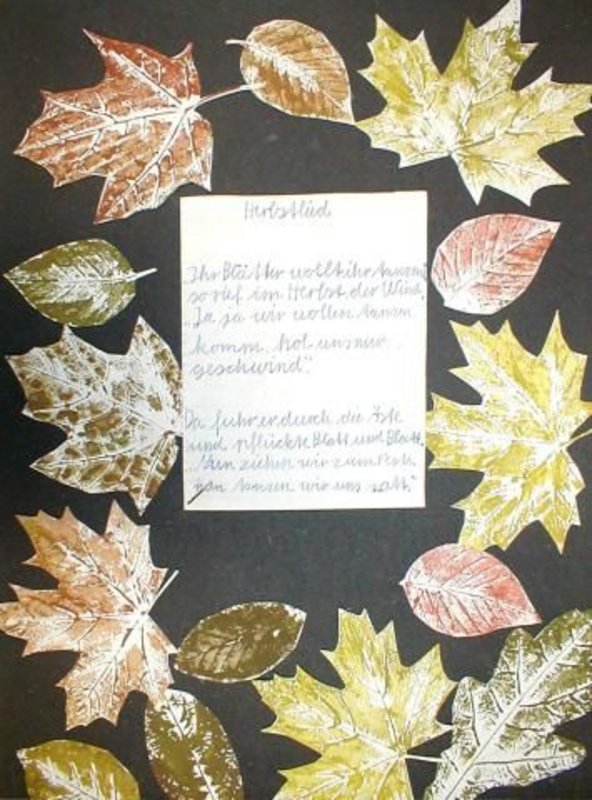 Herbstlied
„Ihr Blätter wollt ihr tanzen"
so rief im Herbst der Wind.
„Ja ja wir wollen tanzen
komm hol uns nur
geschwind".
Da fuhr er durch die Äste
und pflückte Blatt und Blatt.
Nun ziehen wir zum Feste
nun tanzen wir uns satt."